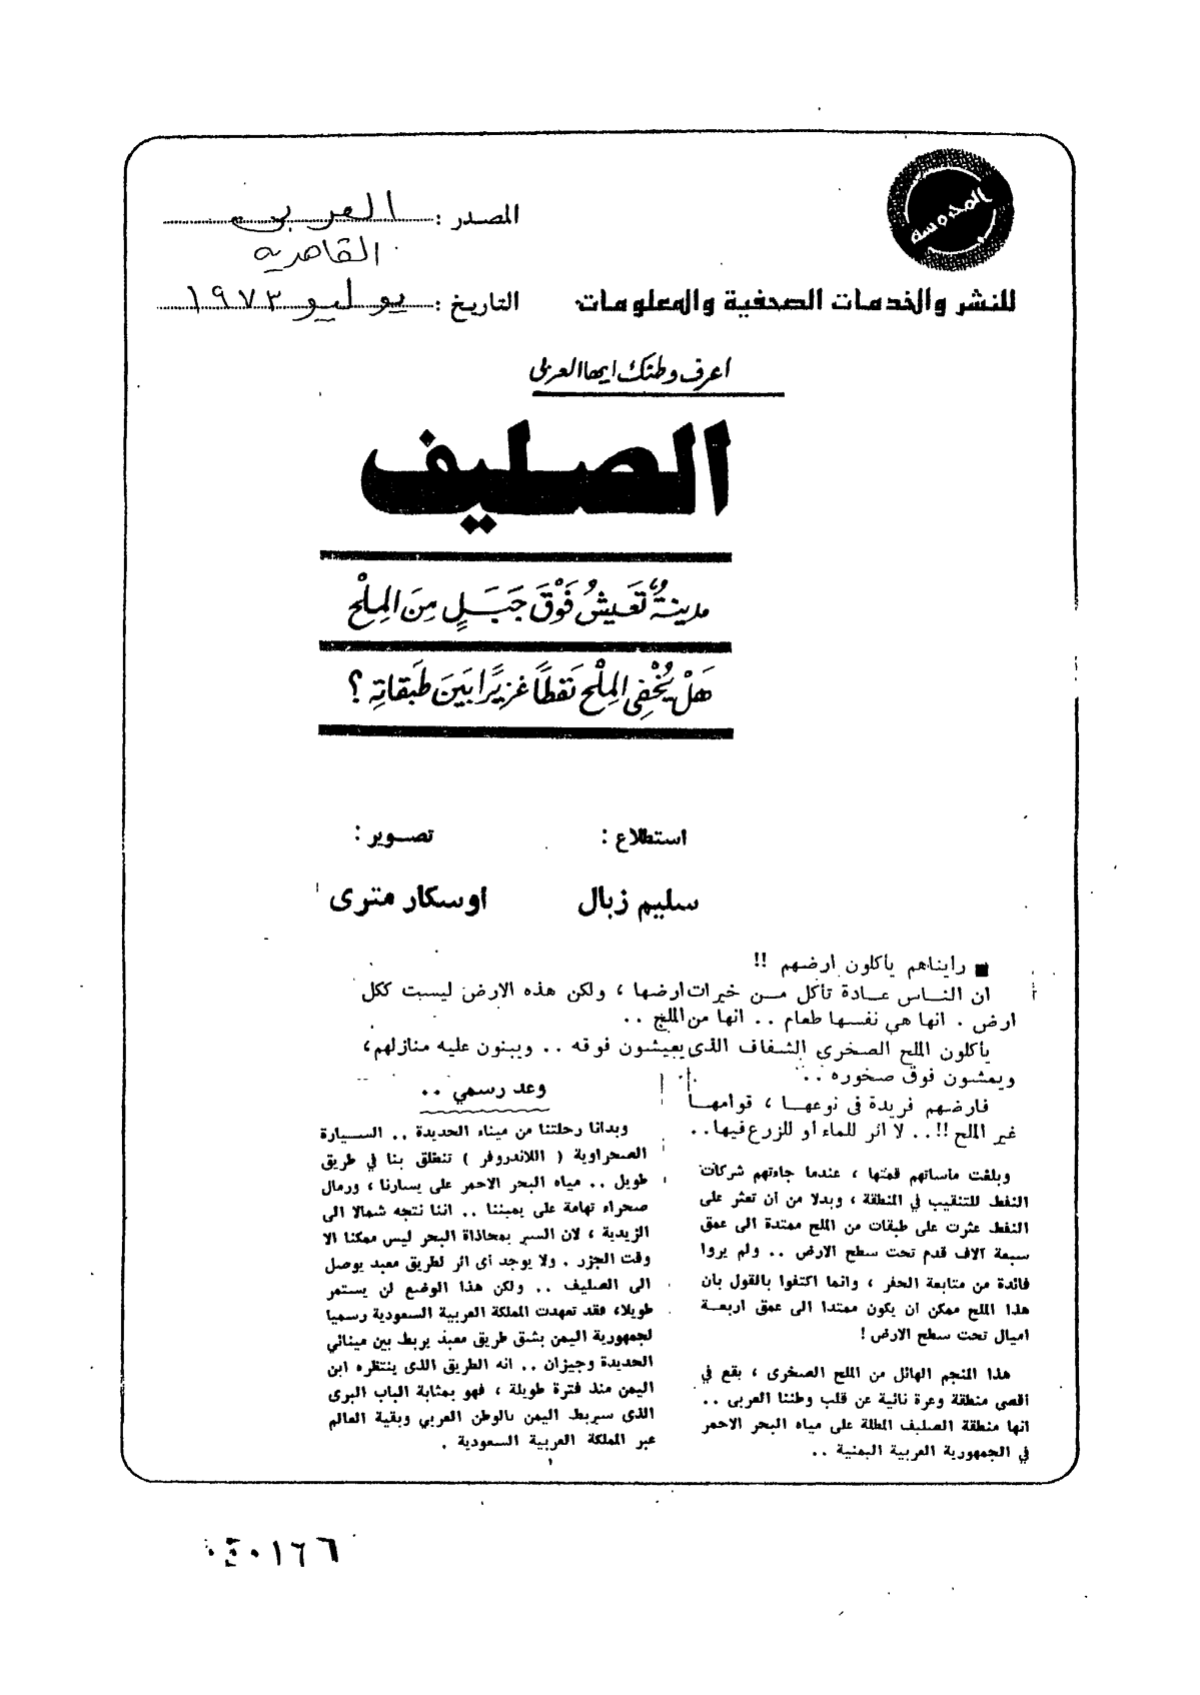 المحروسة
المصدر : العربى
القاهرية
للنشر والخدمات الصحفية والمعلومات
التاريخ : يوليو ١٩٧٣
اعرف وطنك ايها العربى
الصليف
مدينةٌ تَعيشُ فَوْقَ جَبَلٍ مِنَ المِلْح
هَلْ يُخْفِى المِلْح نَفطًا غزيرًا بَينَ طَبقاتِه ؟
استطلاع :
سليم زبال
تصوير :
اوسكار مترى
■ رأيناهم يأكلون ارضهم !!
ان الناس عادة تأكل من خيرات ارضها ، ولكن هذه الارض ليست ككل
ارض . انها هي نفسها طعام .. انها من الملح ..
يأكلون الملح الصخري الشفاف الذى يعيشون فوقه .. ويبنون عليه منازلهم ،
ويمشون فوق صخوره ..
فارضهم فريدة فى نوعها ، قوامها
غير الملح !!.. لا اثر للماء أو للزرع فيها ..
وبلغت مأساتهم قمتها ، عندما جاءتهم شركات
النفط للتنقيب في المنطقة ، وبدلا من أن تعثر على
النفط عثرت على طبقات من الملح ممتدة الى عمق
سبعة آلاف قدم تحت سطح الارض .. ولم يروا
فائدة من متابعة الحفر ، وانما اكتفوا بالقول بان
هذا الملح ممكن ان يكون ممتدا الى عمق اربعة
اميال تحت سطح الارض !
هذا المنجم الهائل من الملح الصخرى ، يقع في
أقصى منطقة وعرة نائية عن قلب وطننا العربى ..
انها منطقة الصليف المطلة على مياه البحر الاحمر
في الجمهورية العربية اليمنية ..
وعد رسمي ..
وبدأنا رحلتنا من ميناء الحديدة .. السيارة
الصحراوية ( اللاندروفر ) تنطلق بنا في طريق
طويل .. مياه البحر الاحمر على يسارنا ، ورمال
صحراء تهامة على يميننا .. اننا نتجه شمالا الى
الزيدية ، لان السير بمحاذاة البحر ليس ممكنا الا
وقت الجزر . ولا يوجد أى اثر لطريق معبد يوصل
الى الصليف .. ولكن هذا الوضع لن يستمر
طويلا، فقد تعهدت المملكة العربية السعودية رسميا
لجمهورية اليمن بشق طريق معبد يربط بين مينائي
الحديدة وجيزان .. انه الطريق الذى ينتظره ابن
اليمن منذ فترة طويلة ، فهو بمثابة الباب البرى
الذى سيربط اليمن بالوطن العربي وبقية العالم
عبر المملكة العربية السعودية .